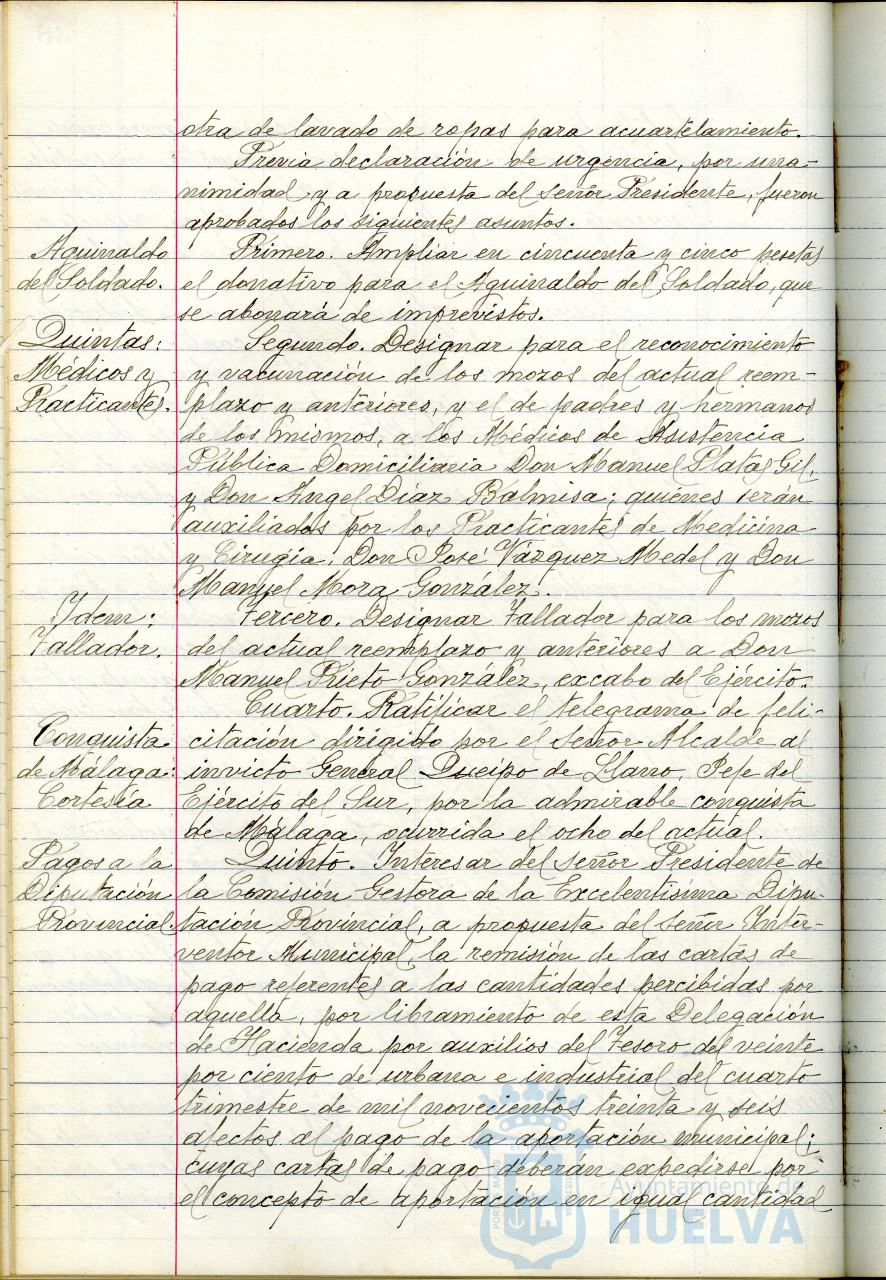 otra de lavado de ropas para acuartelamiento.
Previa declaración de urgencia, por una-
nimidad y a propuesta del señor Presidente, fueron
aprobados los siguientes asuntos.
Aguinaldo
del Soldado.
Primero. Ampliar en cincuenta y cinco pesetas
el donativo para el Aguinaldo del Soldado, que
se abonará de imprevistos.
Quintas:
Médicos y
Practicantes.
Segundo. Designar para el reconocimiento
y vacunación de los mozos del actual reem-
plazo y anteriores, y el de padres y hermanos
de los mismos, a los Médicos de Asistencia
Pública Domiciliaria Don Manuel Platas Gil,
y Don Angel Díaz Balmisa; quiénes serán
auxiliados por los Practicantes de Medicina
y Cirugía, Don José Vázquez Medel y Don
Manuel Mora González.
Idem:
Tallador.
Tercero. Designar Tallador para los mozos
del actual reemplazo y anteriores a Don
Manuel Prieto González, excabo del Ejército.
Conquista
de Málaga:
Cortesía
Cuarto. Ratificar el telegrama de feli-
citación dirigido por el señor Alcalde al
invicto General Queipo de Llano, Jefe del
Ejército del Sur, por la admirable conquista
de Málaga, ocurrida el ocho del actual.
Pagos a la
Diputación
Provincial.
Quinto. Interesar del señor Presidente de
la Comisión Gestora de la Excelentísima Dipu-
tación Provincial, a propuesta del señor Inter-
ventor Municipal, la remisión de las cartas de
pago referentes a las cantidades percibidas por
aquella, por libramiento de esta Delegación
de Hacienda por auxilios del Tesoro del veinte
por ciento de urbana e industrial del cuarto
trimestre de mil novecientos treinta y seis
afectos al pago de la aportación municipal;
cuyas cartas de pago deberán expedirse por
el concepto de aportación en igual cantidad
Ayuntamiento de
HUELVA